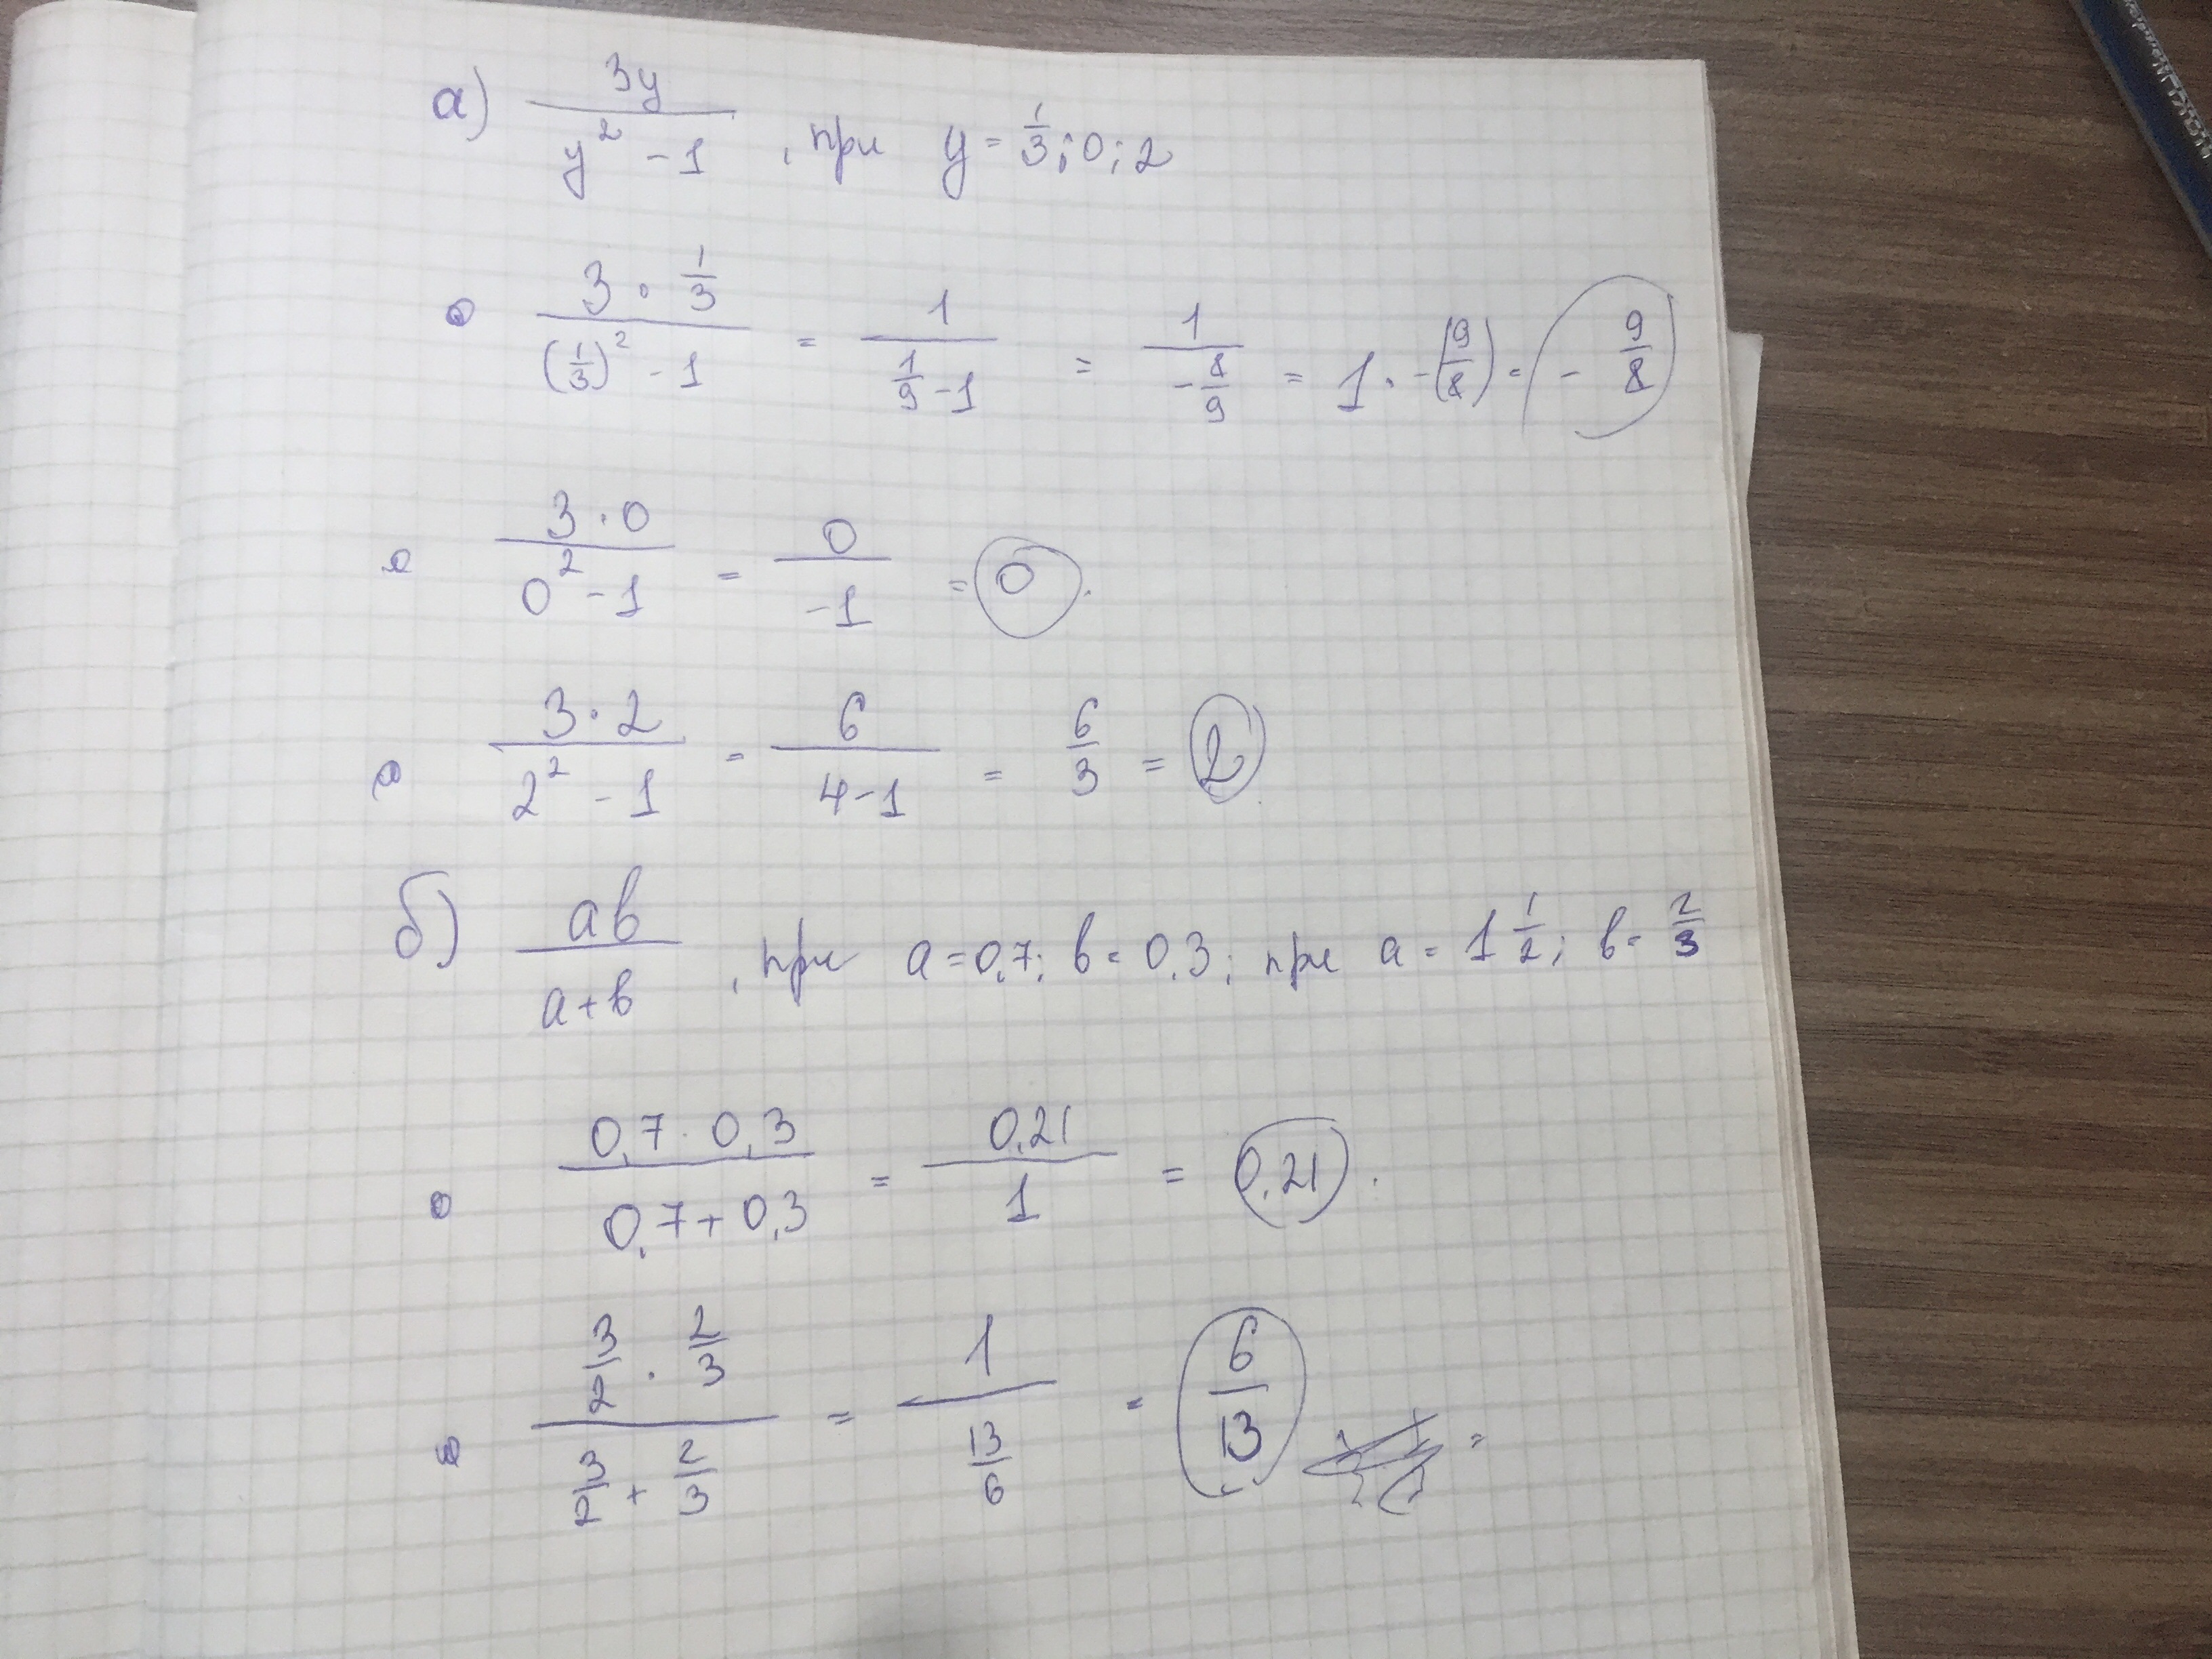 а) 3y / y² - 1 , при y = 1/3; 0; 2
3 · 1/3 / (1/3)² - 1 = 1 / 1/9 - 1 = 1 / - 8/9 = 1 · -(9/8) = - 9/8
3 · 0 / 0² - 1 = 0 / -1 = 0.
3 · 2 / 2² - 1 = 6 / 4-1 = 6/3 = 2
б) ab / a+b , при a = 0,7; b = 0,3; при a = 1 1/2; b = 2/3
0,7 · 0,3 / 0,7 + 0,3 = 0,21 / 1 = 0,21.
3/2 · 2/3 / 3/2 + 2/3 = 1 / 13/6 = 6/13 =